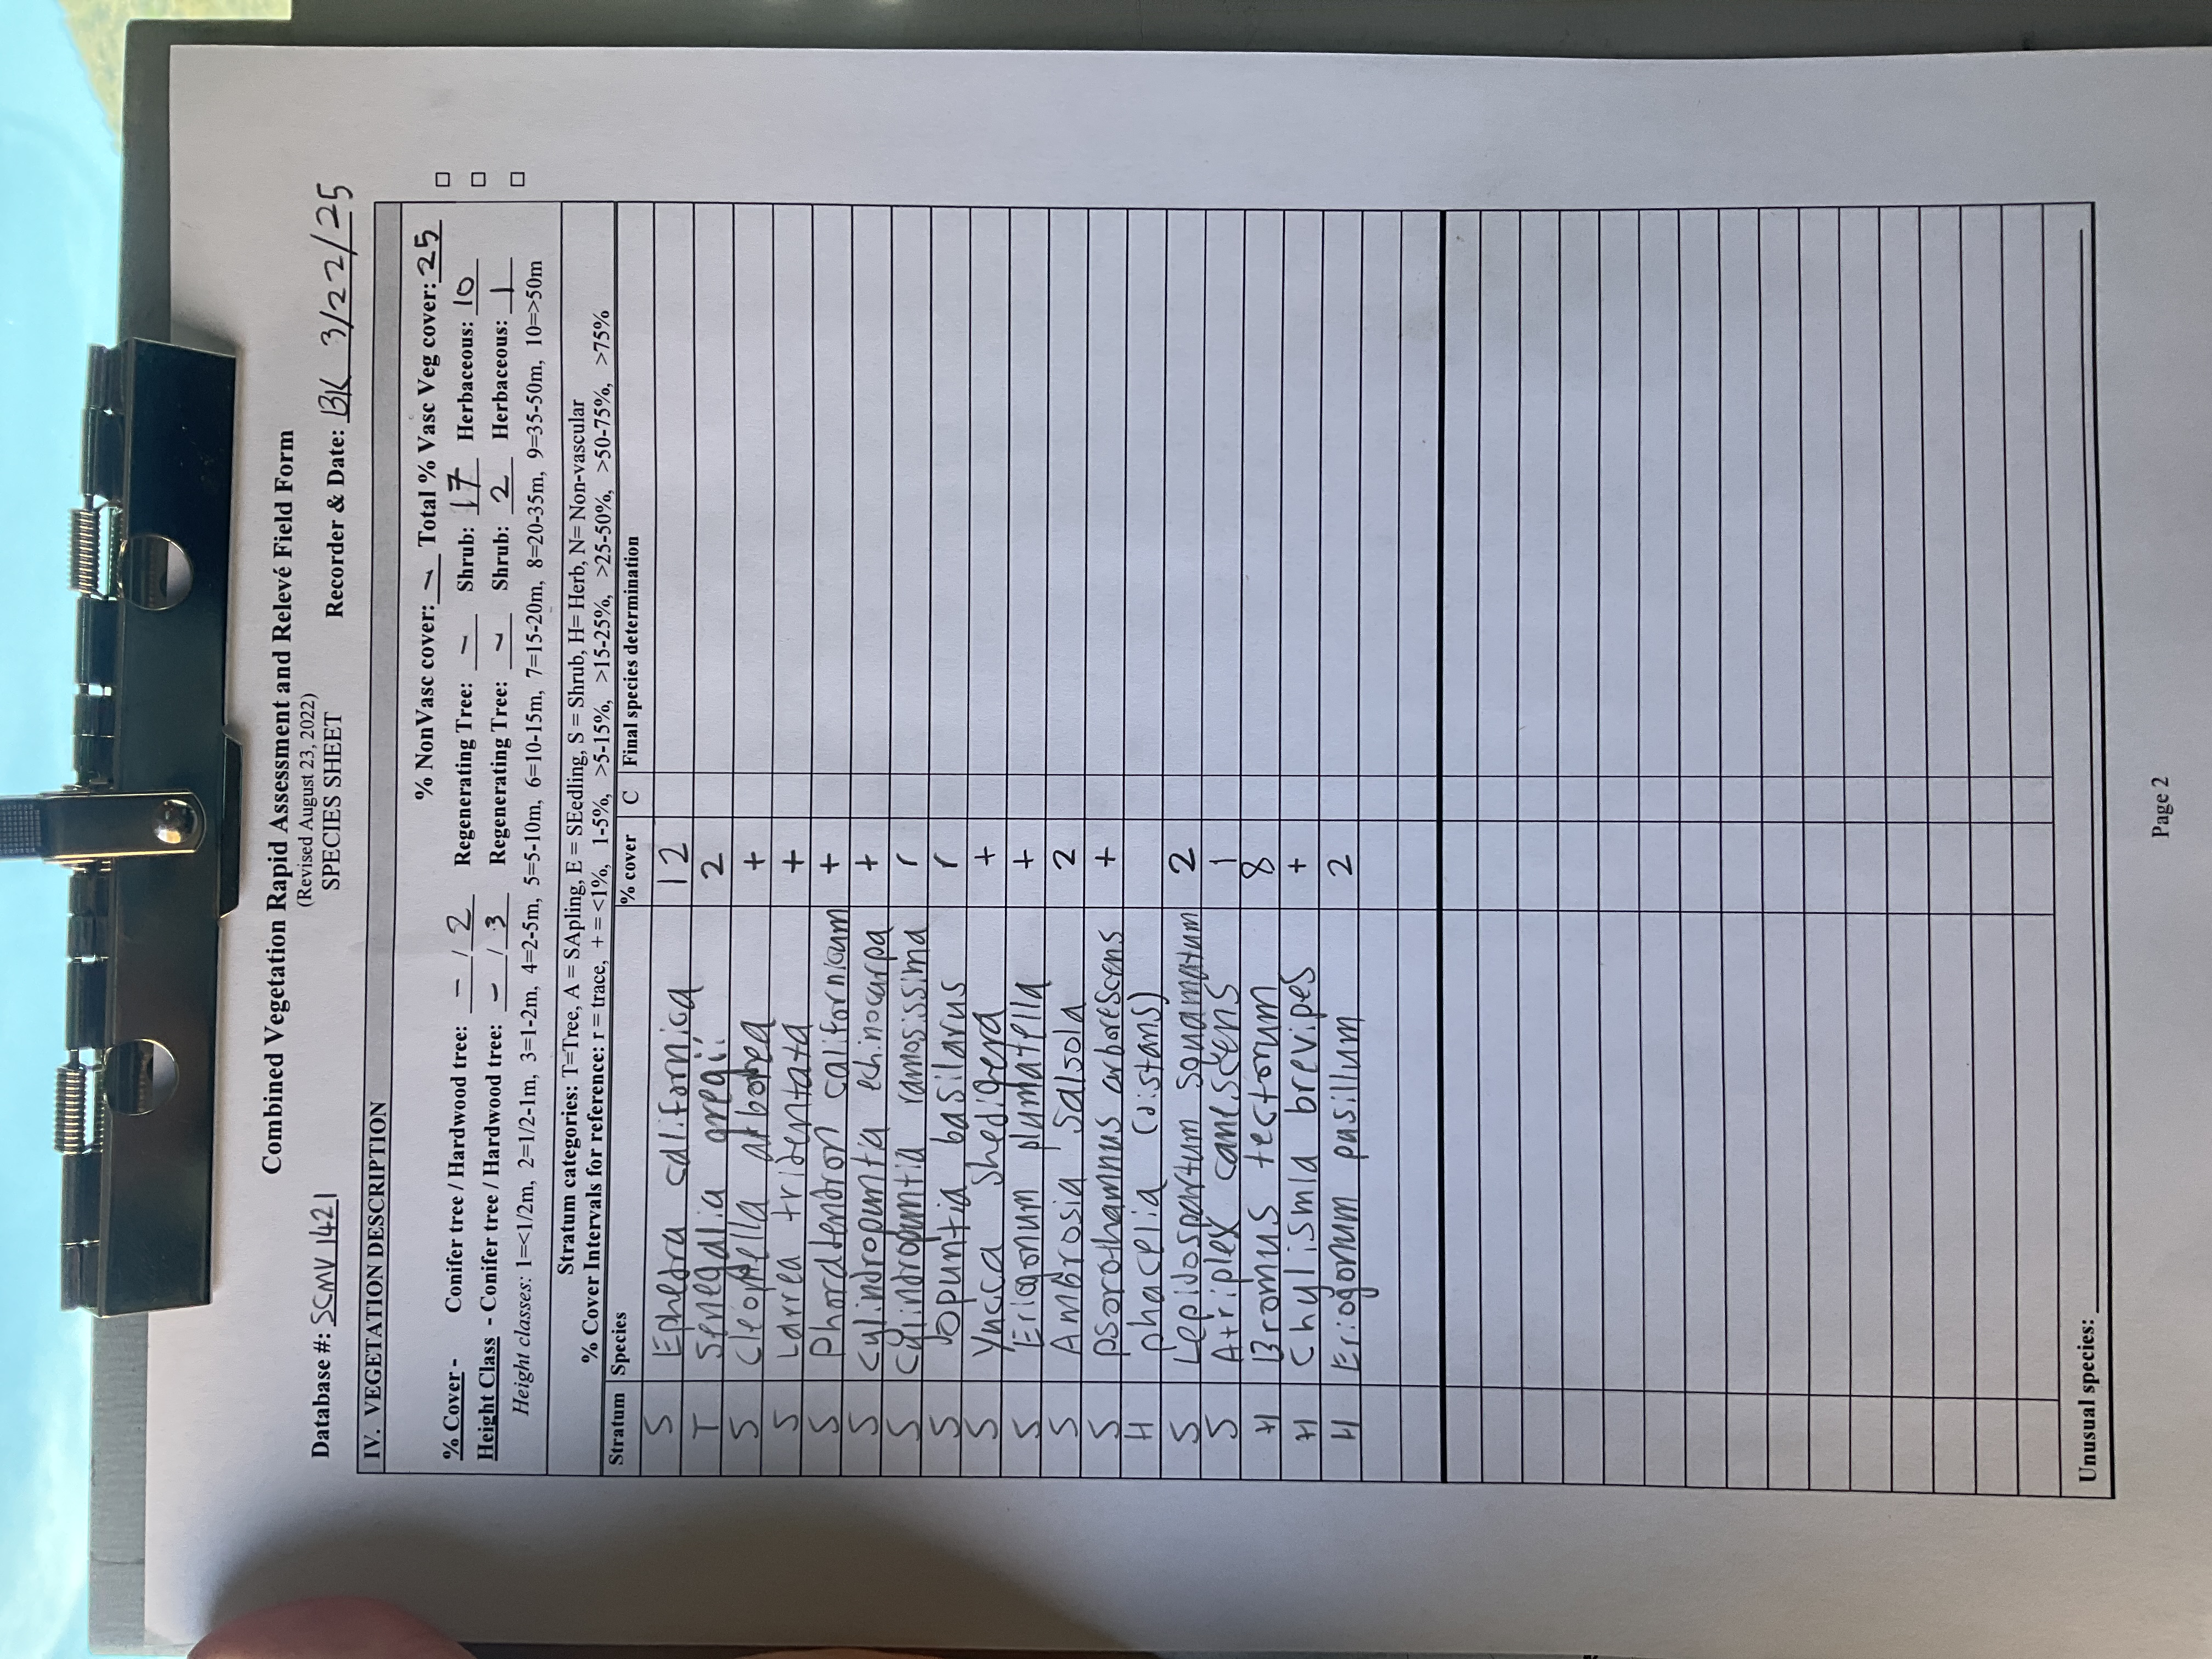 Combined Vegetation Rapid Assessment and Relevé Field Form
(Revised August 23, 2022)
SPECIES SHEET
Database #: SCMV 1421 Recorder & Date: BK 3/22/25
IV. VEGETATION DESCRIPTION
% NonVasc cover: – Total % Vasc Veg cover: 25
% Cover - Conifer tree / Hardwood tree: – / 2 Regenerating Tree: – Shrub: 17 Herbaceous: 10
Height Class - Conifer tree / Hardwood tree: – / 3 Regenerating Tree: – Shrub: 2 Herbaceous: 1
Height classes: 1=<1/2m, 2=1/2-1m, 3=1-2m, 4=2-5m, 5=5-10m, 6=10-15m, 7=15-20m, 8=20-35m, 9=35-50m, 10=>50m
Stratum categories: T=Tree, A = SApling, E = SEedling, S = Shrub, H= Herb, N= Non-vascular
% Cover Intervals for reference: r = trace, + = <1%, 1-5%, >5-15%, >15-25%, >25-50%, >50-75%, >75%
Stratum Species % cover C Final species determination
S Ephedra californica 12
T Senegalia gregii 2
S Cleomella arborea +
S Larrea tridentata +
S Phoradendron californicum +
S Cylindropuntia echinocarpa +
S Cylindropuntia ramosissima r
S Opuntia basilarus r
S Yucca shedigera +
S Eriogonum plumatella +
S Ambrosia salsola 2
S Psorothamnus arborescens +
H Phacelia (distans)
S Lepidospartum squamatum 2
S Atriplex canescens 1
H Bromus tectorum 8
H Chylismia brevipes +
H Eriogonum pusillum 2
Unusual species:
Page 2